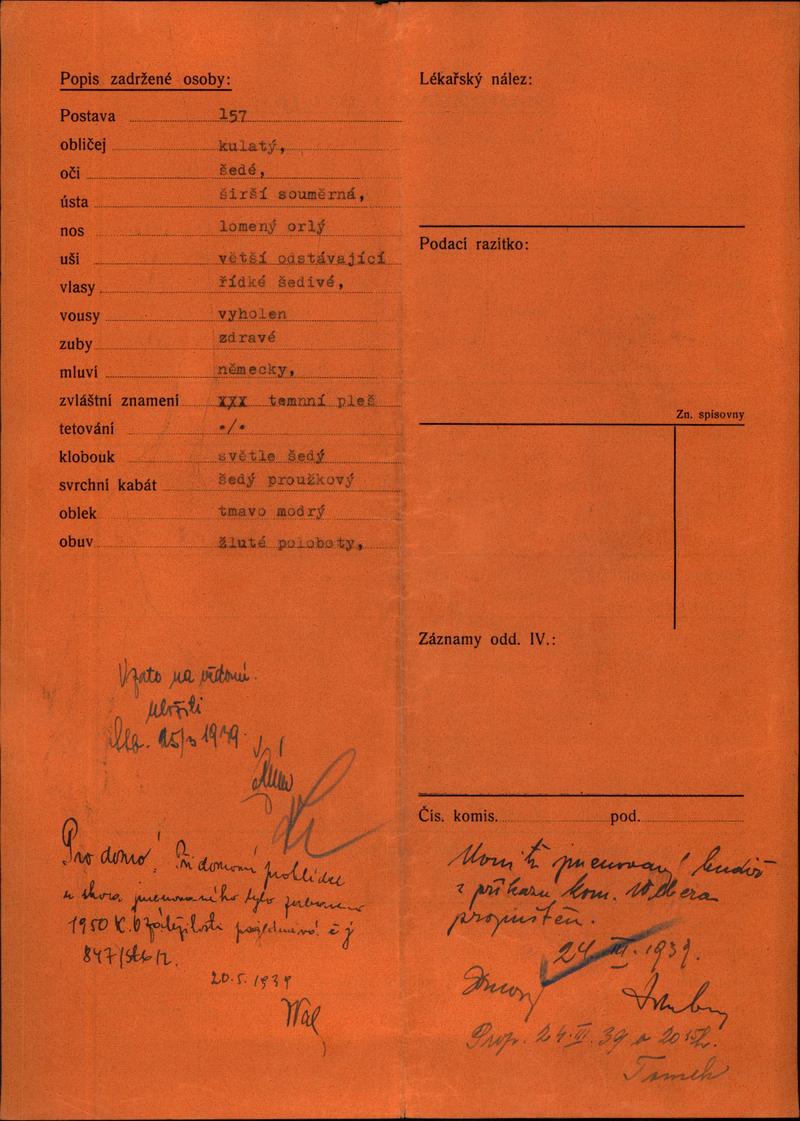 Popis zadržené osoby:
Postava 157
obličej kulatý,
oči šedé,
ústa širší souměrná,
nos lomený orlý
uši větší odstávající
vlasy řídké šedivé,
vousy vyholen
zuby zdravé
mluví německy,
zvláštní znamení xxx temnní pleš
tetování •/•
klobouk světle šedý
svrchní kabát šedý proužkový
oblek tmavo modrý
obuv žluté poloboty,
Vzato na vědomí.
uložiti
1939
Pro domo! Při domovní prohlídce
u shora jmenovaného bylo
1950 K.
847/
20.5.1939
Lékařský nález:
Podací razítko:
Zn. spisovny
Záznamy odd. IV.:
Čís. komis. pod.
jmenovaný budiž
z příkazu kom. Webera
propuštěn.
24. III. 1939.
Prop. 24. III. 39 o 20
Tomek